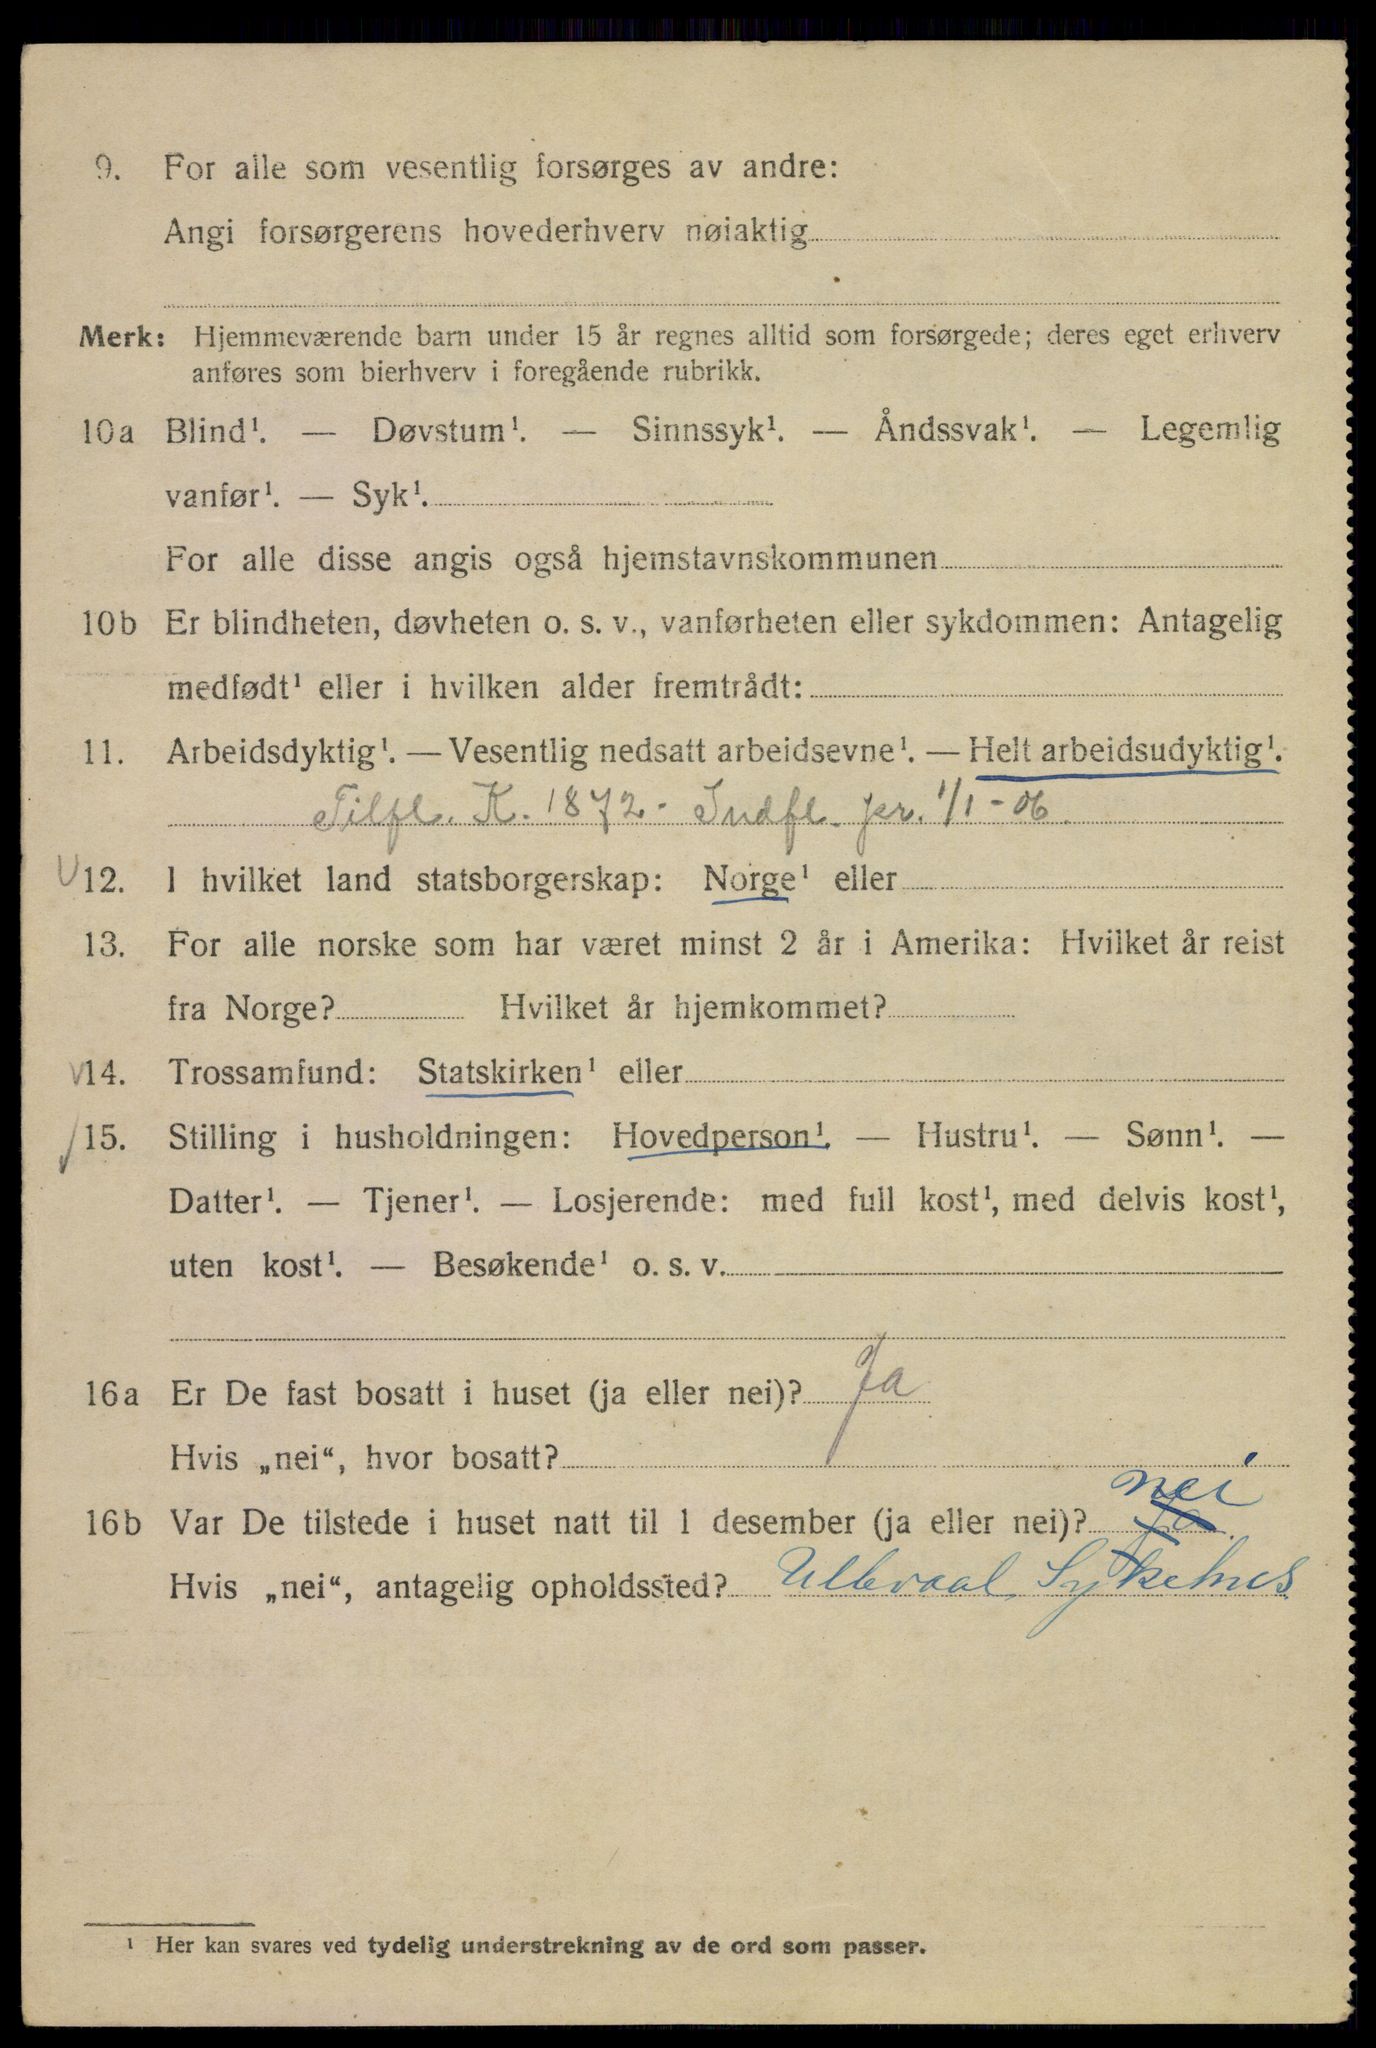 9. For alle som vesentlig forsørges av andre:
Angi forsørgerens hovederhverv nøiaktig
Merk: Hjemmeværende barn under 15 år regnes alltid som forsørgede; deres eget erhverv
anføres som bierhverv i foregående rubrikk.
10a Blind¹. — Døvstum¹. — Sinnssyk¹. — Åndssvak¹. — Legemlig
vanfør¹. — Syk¹.
For alle disse angis også hjemstavnskommunen
10b Er blindheten, døvheten o. s. v., vanførheten eller sykdommen: Antagelig
medfødt¹ eller i hvilken alder fremtrådt:
11. Arbeidsdyktig¹. — Vesentlig nedsatt arbeidsevne¹. — Helt arbeidsudyktig¹.
Tilfl. K. 1872 - Indfl. pr. 1/1 - 06
12. I hvilket land statsborgerskap: Norge¹ eller
13. For alle norske som har været minst 2 år i Amerika: Hvilket år reist
fra Norge? Hvilket år hjemkommet?
14. Trossamfund: Statskirken¹ eller
15. Stilling i husholdningen: Hovedperson¹. — Hustru¹. — Sønn¹. —
Datter¹. — Tjener¹. — Losjerende: med full kost¹, med delvis kost¹,
uten kost¹. — Besøkende¹ o. s. v.
16a Er De fast bosatt i huset (ja eller nei)? Ja
Hvis „nei“, hvor bosatt?
nei
16b Var De tilstede i huset natt til 1 desember (ja eller nei)? ja
Hvis „nei“, antagelig opholdssted? Ullevaal Sykehus
¹ Her kan svares ved tydelig understrekning av de ord som passer.